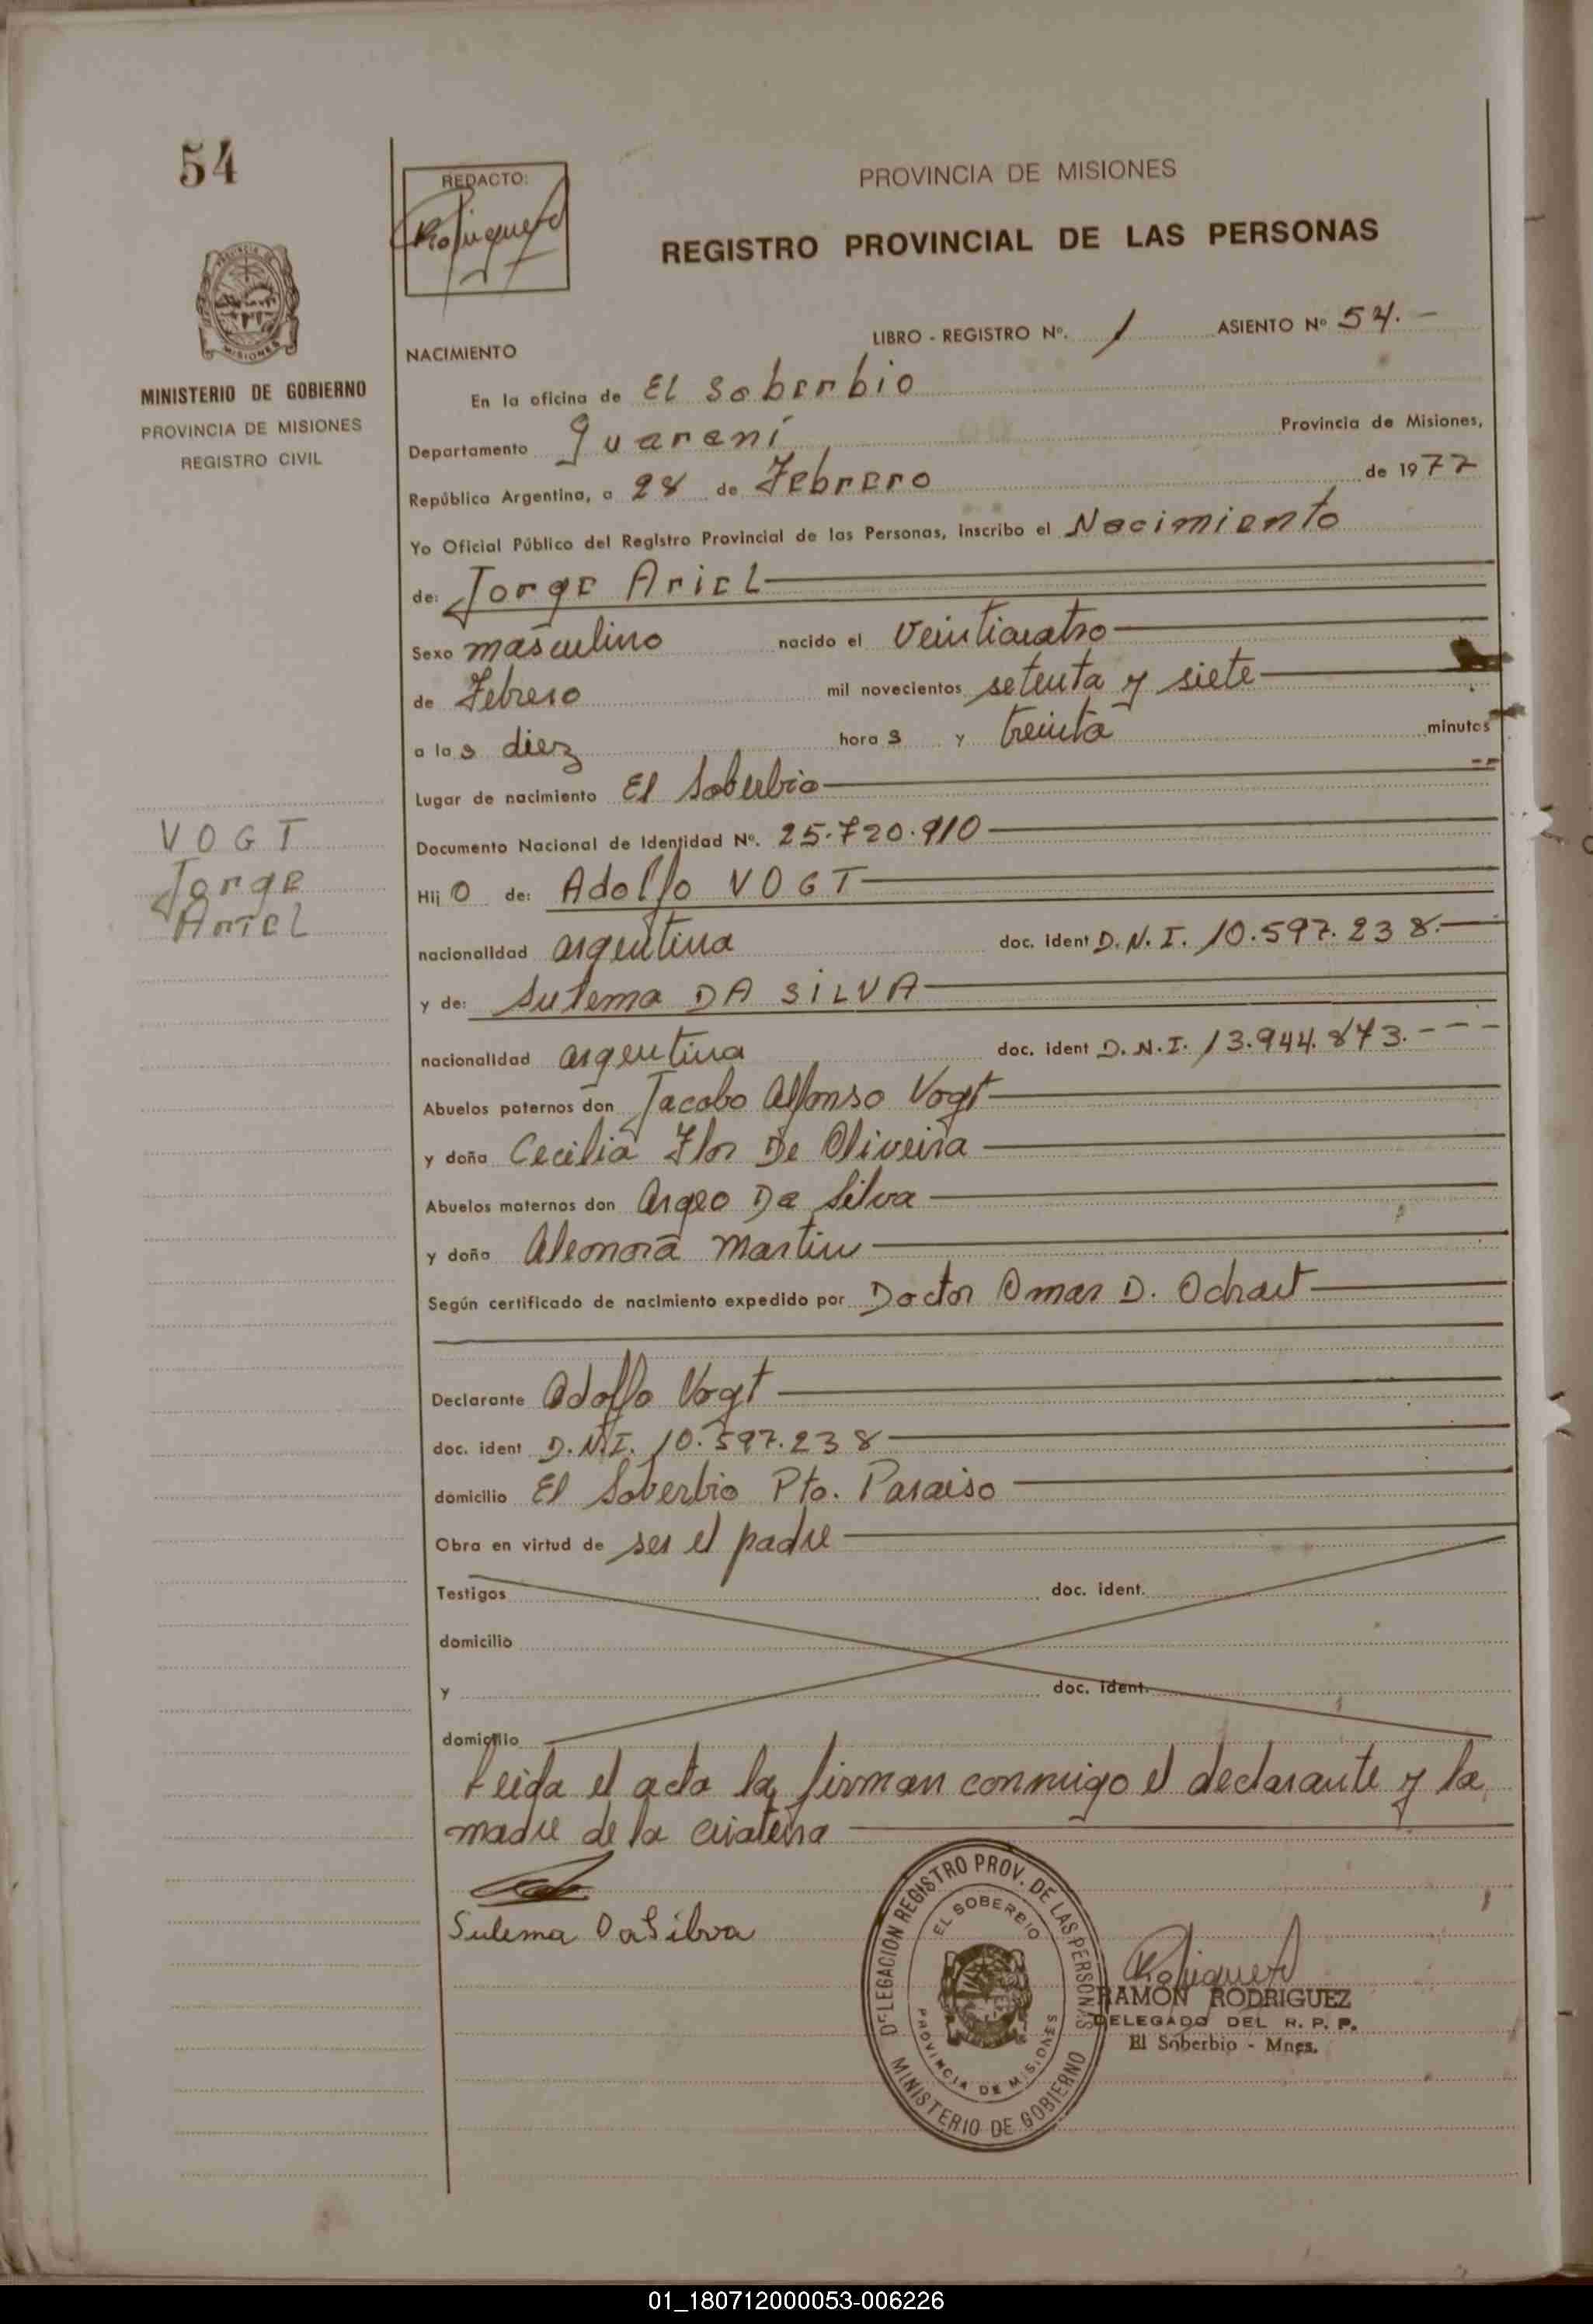 54
REDACTO:
PROVINCIA DE MISIONES
REGISTRO PROVINCIAL DE LAS PERSONAS
LIBRO - REGISTRO Nº. 1 ASIENTO Nº 54.-
NACIMIENTO
MISIONES
MINISTERIO DE GOBIERNO
PROVINCIA DE MISIONES
REGISTRO CIVIL
En la oficina de El Soberbio
Departamento Guaraní Provincia de Misiones,
República Argentina, a 28 de Febrero de 1977
Yo Oficial Público del Registro Provincial de las Personas, inscribo el Nacimiento
de: Jorge Ariel
Sexo masculino nacido el veinticuatro
de Febrero mil novecientos setenta y siete
a las diez horas y treinta minutos
Lugar de nacimiento El Soberbio
Documento Nacional de Identidad Nº. 25.720.910
VOGT
Jorge
Ariel
Hijo de: Adolfo VOGT
nacionalidad argentina doc. ident D.N.I. 10.597.238.
y de: Sulema DA SILVA
nacionalidad argentina doc. ident D.N.I. 13.944.873.---
Abuelos paternos don Jacobo Alfonso Vogt
y doña Cecilia Flor De Oliveira
Abuelos maternos don Argeo Da Silva
y doña Martin
Según certificado de nacimiento expedido por Doctor Omar D.
Declarante Adolfo Vogt
doc. ident D.N.I. 10.597.238
domicilio El Soberbio Pto. Paraiso
Obra en virtud de ser el padre
Testigos doc. ident.
domicilio
y doc. ident.
domicilio
Leida el acta la firman conmigo el declarante y la
madre de la criatura
Sulema DaSilva
DELEGACION REGISTRO PROV. DE LAS PERSONAS
EL SOBERBIO
PROVINCIA DE MISIONES
MINISTERIO DE GOBIERNO
RAMÓN RODRIGUEZ
DELEGADO DEL R. P. P.
El Soberbio - Mnes.
01_180712000053-006226